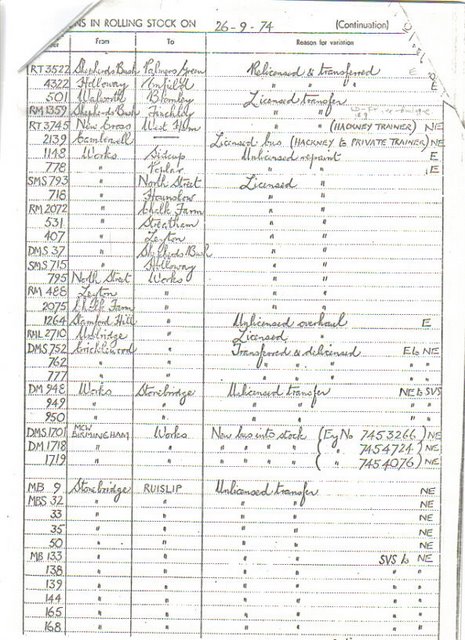 NS IN ROLLING STOCK ON 26-9-74 (Continuation)
From To Reason for variation
RT 3522 Shepherds Bush Palmers Green Relicensed & transferred E
4322 Holloway Enfield " " " E
501 Walworth Bromley Licensed transfer
RM 1359 Shepherds Bush Finchley " "
RT 3745 New Cross West Ham " " (HACKNEY TRAINER) NE
2139 Camberwell Licensed bus (HACKNEY to PRIVATE TRAINER) NE
1148 Works Sidcup Unlicensed repaint E
778 " Poplar " " E
SMS 793 " North Street Licensed "
718 " Hounslow " "
RM 2072 " Chalk Farm " "
531 " Streatham " "
407 " Leyton " "
DMS 37 " Shepherds Bush " "
SMS 715 " Holloway " "
795 North Street Works " "
RM 488 Leyton " " "
2075 Chalk Farm " " "
1264 Stamford Hill " Unlicensed overhaul E
RML 2710 Uxbridge " Licensed "
DMS 752 Cricklewood " Transferred & delicensed E to NE
762 " " " " " " "
777 " " " " " " "
DM 948 Works Stonebridge Unlicensed transfer NE to SVS
949 " " " " " "
950 " " " " " "
DMS 1701 MCW BIRMINGHAM Works New bus into stock (Eng No 7453266) NE
DM 1718 " " " " " " ( " 7454724) NE
1719 " " " " " " ( " 7454076) NE
MB 9 Stonebridge RUISLIP Unlicensed transfer NE
MBS 32 " " " " NE
33 " " " " NE
35 " " " " NE
50 " " " " NE
MB 133 " " " " SVS to NE
138 " " " " " "
139 " " " " " "
144 " " " " " "
165 " " " " " "
168 " " " " " "